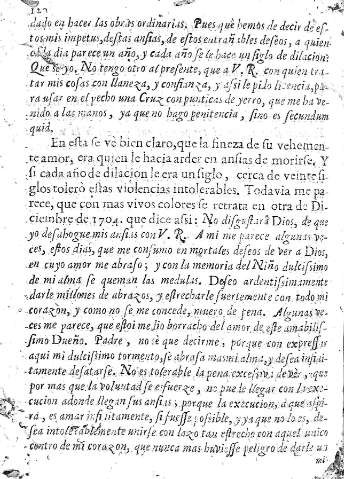 dado en hacer las obras ordinarias. Pues que hemos de decir de es-
tos mis impetus, destas ansias, de estos entrañables deseos, a quien
vn dia parece un año, y cada año se le hace un siglo de dilacion?
Que se yo. No tengo otro al presente, que a V. R. con quien tra-
tar mis cosas con llaneza, y confianza, y assi le pido licencia, pa-
ra usar en el pecho una Cruz con punticas de yerro, que me ha ve-
nido a las manos, ya que no hago penitencia, sino es secundum
quid.
En esta se vè bien claro, que la fineza de su vehemen-
te amor, era quien le hacia arder en ansias de morirse, Y
si cada año de dilacion le era un siglo, cerca de veinte si-
glos tolerò estas violencias intolerables. Todavia me pa-
rece, que con mas vivos colores se retrata en otra de Di-
ciembre de 1704. que dice assi: No disgustarà Dios, de que
yo desahogue mis ansias con V. R. A mi me parece algunas ve-
ces, estos dias, que me consumo en mortales deseos de ver a Dios,
en cuyo amor me abraso; y con la memoria del Niño dulcissimo
de mi alma se queman las medulas. Deseo ardentissimamente
darle millones de abrazos, y estrecharle fuertemente con todo mi
corazon, y como no se me concede, muero de pena. Algunas ve-
ces me parece, que estoi medio borracho del amor de este amabilis-
simo Dueño. Padre, no sè que decirme; porque con expressar
aqui mi dulcissimo tormento, se abrasa mas mi alma, y desea infini-
tamente desatarse. No es tolerable la pena excessiva de ver, que
por mas que la voluntad se esfuerze, no puede llegar con la exe-
cucion adonde llegan sus ansias; porque la execucion, a que aspi-
ra, es amar infinitamente, si fuesse possible, y ya que no lo es, de-
sea intolerablemente unirse con lazo tan estrecho con aquel unico
centro de mi corazon, que nunca mas huviesse peligro de darle un
mi